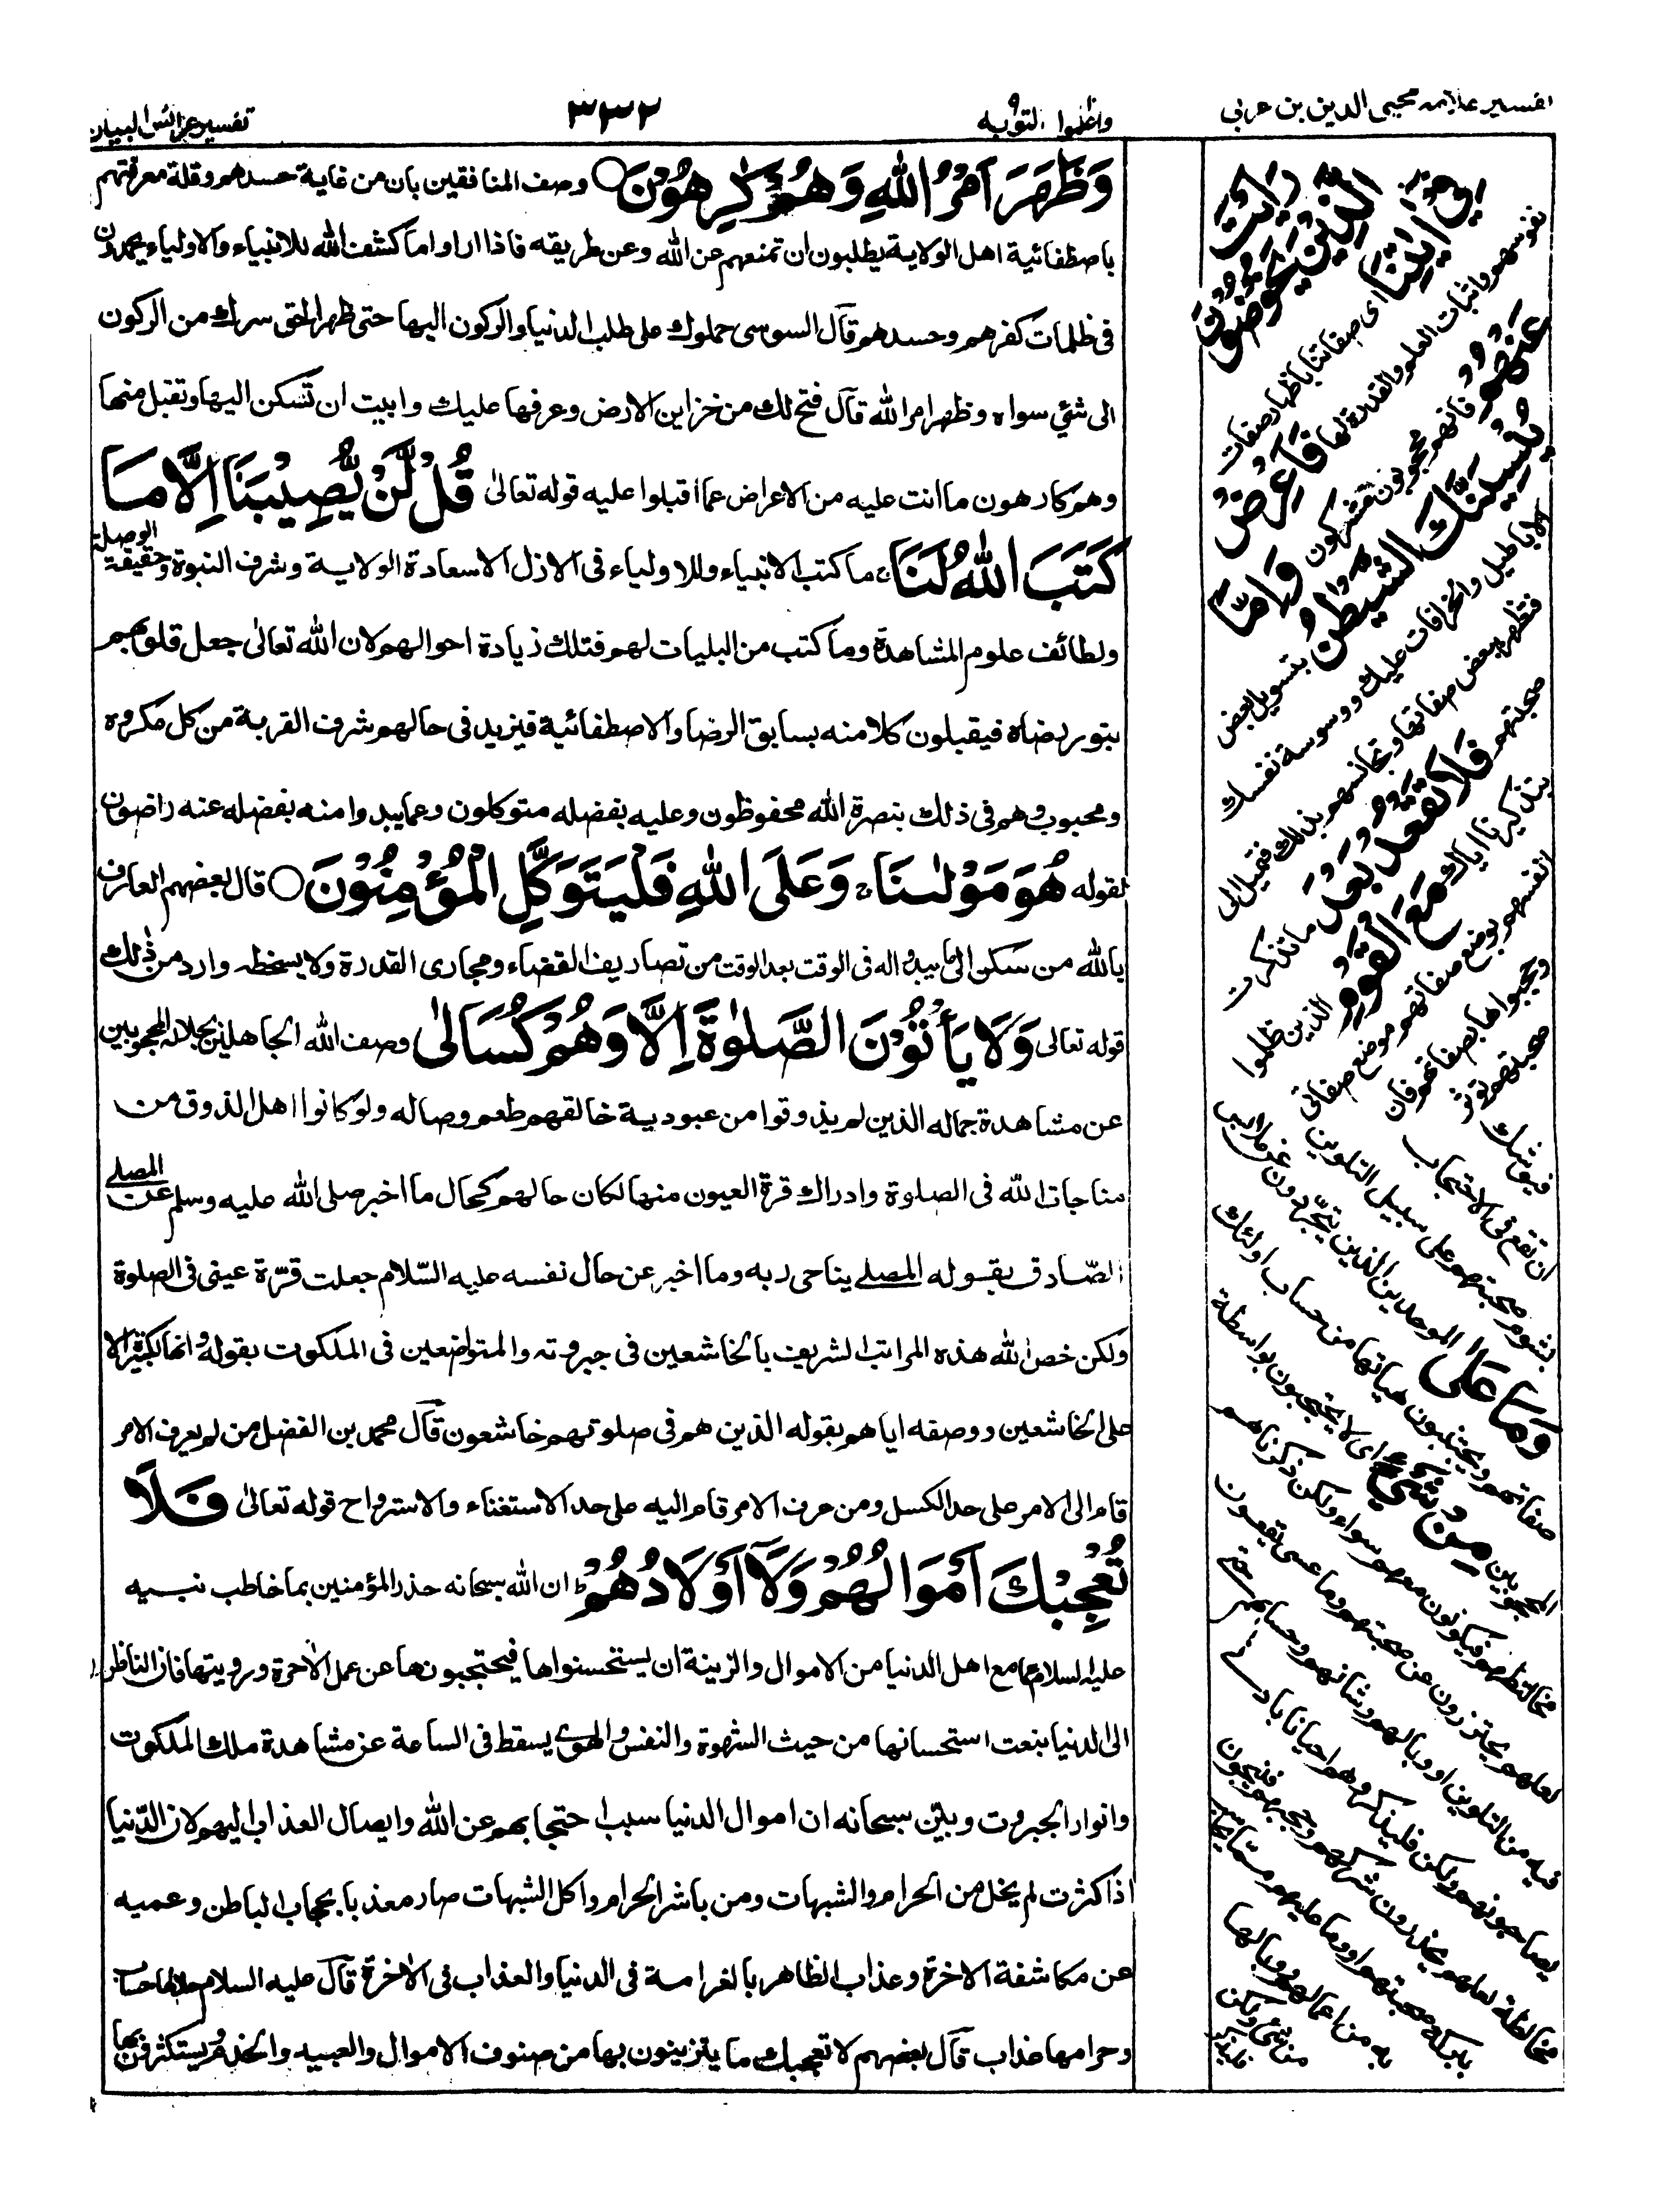 تفسير علامه محيى الدين بن عربى
واعلموا التوبه ٩
٣٣٢
تفسير عرائس البيان
وَظَهَرَ اَمْرُ اللّٰهِ وَهُمْ كٰرِهُوْنَ ○ وصف المنافقين بان من غاية حسدهم وقلة معرفتهم
باصطفائية اهل الولاية يطلبون ان تمنعهم عن الله وعن طريقه فاذا اراوا ما كشف الله للانبياء والاولياء يجحدون
فى ظلمات كفرهم وحسدهم قال السوسى حملوك على طلب الدنيا والركون اليها حتى ظهر الحق سرك من الركون
الى شئ سواه وظهر امر الله قال فتح لك من خزاين الارض وعرفها عليك وابيت ان تسكن اليها وتقبل منها
وهم كارهون ما انت عليه من الاعراض عما اقبلوا عليه قوله تعالىٰ قُلْ لَّنْ يُّصِيْبَنَا اِلَّا مَا
كَتَبَ اللّٰهُ لَنَا ۚ ما كتب الانبياء وللاولياء فى الازل الا سعادة الولاية وشرف النبوة وحقيقة الوصلة
ولطائف علوم المشاهدة وما كتب من البليات لهم فتلك زيادة احوالهم لان الله تعالىٰ جعل قلوبهم
بنور رضاه فيقبلون كلا منه بسابق الرضا والاصطفائية فيزيد فى حالهم شرف القربة من كل مكروه
ومحبوب وهم فى ذلك بنصرة الله محفوظون وعليه بفضله متوكلون وعما يبدوا منه بفضله عنه راضون
لقوله هُوَ مَوْلٰىنَا ۚ وَعَلَى اللّٰهِ فَلْيَتَوَكَّلِ الْمُؤْمِنُوْنَ ○ قال بعضهم العارف
بالله من سكن الى ما يبدو اله فى الوقت بعد الوقت من تصاريف القضاء ومجارى القدرة ولا يسخطه وارد من ذٰلك
قوله تعالى وَلَا يَأْتُوْنَ الصَّلٰوةَ اِلَّا وَهُمْ كُسَالٰى وصف الله الجاهلين بجلاله المحجوبين
عن مشاهدة جماله الذين لم يذوقوا من عبودية خالقهم طعم وصاله ولو كانوا اهل الذوق من
مناجات الله فى الصلوة وادراك قرة العيون منها لكان حالهم كحال ما اخبر صلى الله عليه وسلم عن المصلے
الصّادق بقوله المصلے يناجى ربه وما اخبر عن حال نفسه عليه السّلام جعلت قرّة عينى فى الصلوة
ولكن خص الله هذه المراتب الشريف بالخاشعين فى جبروته والمتواضعين فى الملكوت بقوله وانها لكبيرة الا
على الخاشعين ووصفه اياهم بقوله الذين هم فى صلوتهم خاشعون قال محمد بن الفضل من لم يعرف الامر
قام الى الامر على حد الكسل ومن عرف الامر قام اليه على حد الاستغناء والاسترواح قوله تعالىٰ فَلَا
تُعْجِبْكَ اَمْوَالُهُمْ وَلَآ اَوْلَادُهُمْ ؕ ان الله سبحانه حذر المؤمنين بما خاطب نبيه
عليه السلام عما مع اهل الدنيا من الاموال والزينة ان يستحسنواها فيحتجبون بها عن عمل الاٰخرة ورويتها فان الناظر
الى الدنيا بنعت استحسانها من حيث الشهوة والنفس والهوے يسقط فى الساعة عن مشاهدة ملك الملكوت
وانوار الجبروت وبيّن سبحانه ان اموال الدنيا سبب احتجابهم عن الله وايصال العذاب اليهم لان الدّنيا
اذا كثرت لم يخل من الحرام والشبهات ومن باشر الحرام واكل الشبهات صار معذبا بحجاب الباطن وعميه
عن مكاشفة الاخرة وعذاب الظاهر بالغرامة فى الدنيا والعذاب فى الاٰخرة قال عليه السلام حلالها حساب
وحرامها عذاب قال بعضهم لا تعجبك ما يتزينون بها من صنوف الاموال والعبيد والخدم ويستكثرون بها
نفوسهم واثبات العلم والقدرة لها فَاَعْرِضْ
رَاَيْتَ الَّذِيْنَ يَخُوْضُوْنَ
فِىْ اٰيٰتِنَا اى صفاتنا باظهار صفات
عَنْهُمْ فانهم محجوبون مشركون وَاِمَّا
يُنْسِيَنَّكَ الشَّيْطٰنُ بتسويل بعض
الاباطيل والخرافات عليك ووسوسة نفسك
فتظهر ببعض صفاتها وتجانسهم بذلك فتميل الى
صحبتهم فَلَا تَقْعُدْ بَعْدَ ما تذكرت
بتذكيرنا اياك مَعَ الْقَوْمِ الذين ظلموا
انفسهم بوضع صفاتهم موضع صفاتى
وحجبوها بصفاتهم فان
صحبتهم تؤثر
فيوشك
ان تقع فى الاحتجاب
بشوم صحبتهم على سبيل التلوين
وَمَا عَلَى الموحدين الذين يتجردون عن ملابس
صفاتهم ويجتنبون هياتها من حساب اولئك
المحجوبين مِنْ شَىْءٍ اى لا يحتجبون بواسطة
مخالطتهم فيكونون معهم سواء ولكن ذكرناهم
لعلهم يحترزون عن صحبتهم وما عسى يقعون
فيه من التلوين او وبالهم وشانهم وحسابهم
يصاحبونهم ولكن فليذكروهم احيانا بادنى
مخالطة لعلهم يحذرون شركهم وحجبهم فينجون
ببركة صحبتهم او وما عليهم مما يحاسب
به من اعمالهم ووبالها
من شئ ولكن